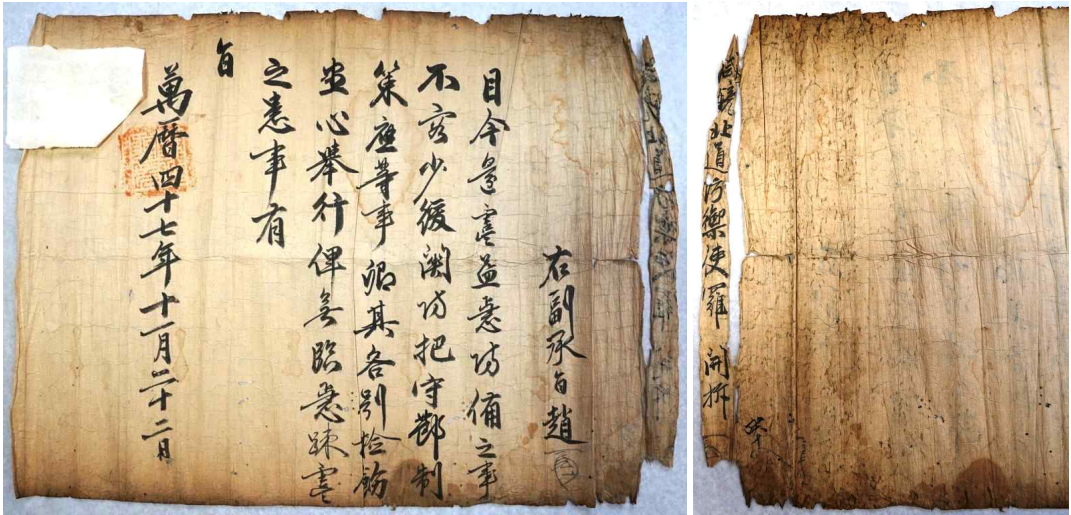 右副承旨趙
目今邊虞益急防備之事
不容少緩關防把守節制
策應等事卿其各別檢飭
盡心擧行俾無臨急踈虞
之患事有
旨
萬曆四十七年十一月二十二日
咸鏡北道防禦使羅 開拆